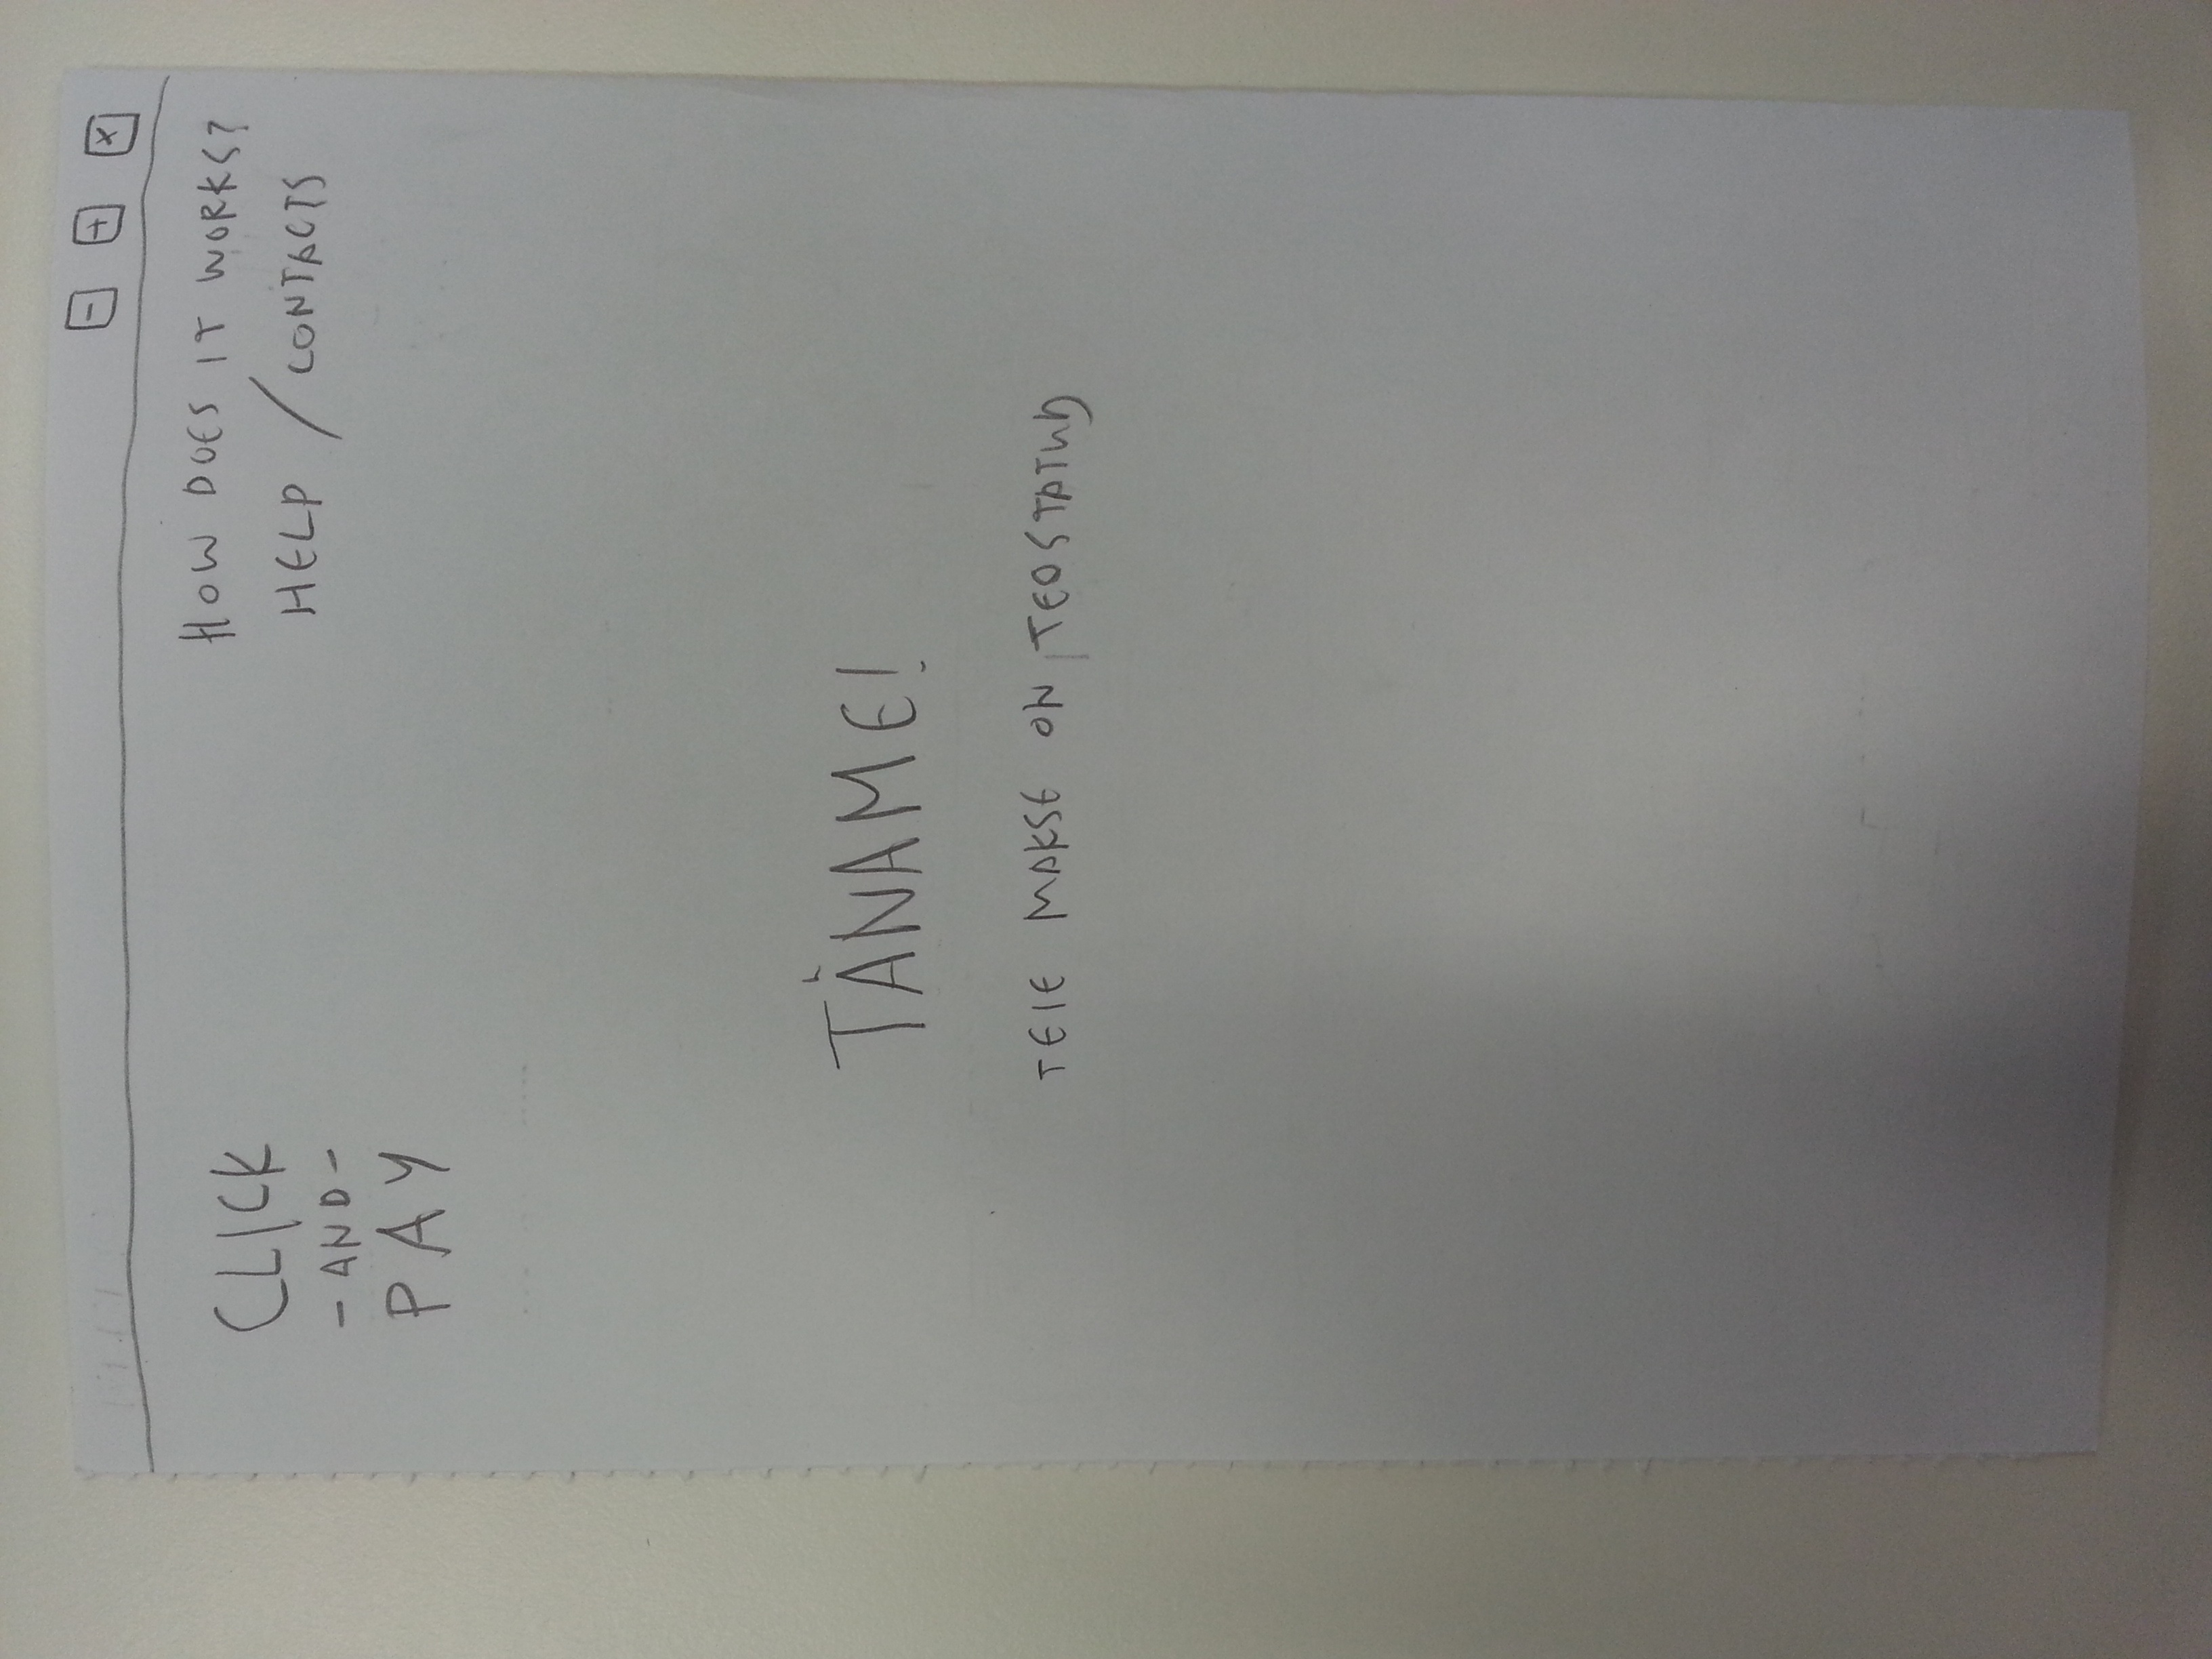 - + x
CLICK
- AND -
PAY
HOW DOES IT WORKS?
HELP / CONTACTS
TÄNAME!
TEIE MAKSE ON TEOSTATUD